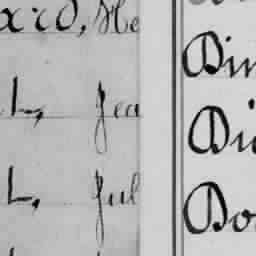 xrd, He
L, Jea
L, Jul
Din
Di
Do